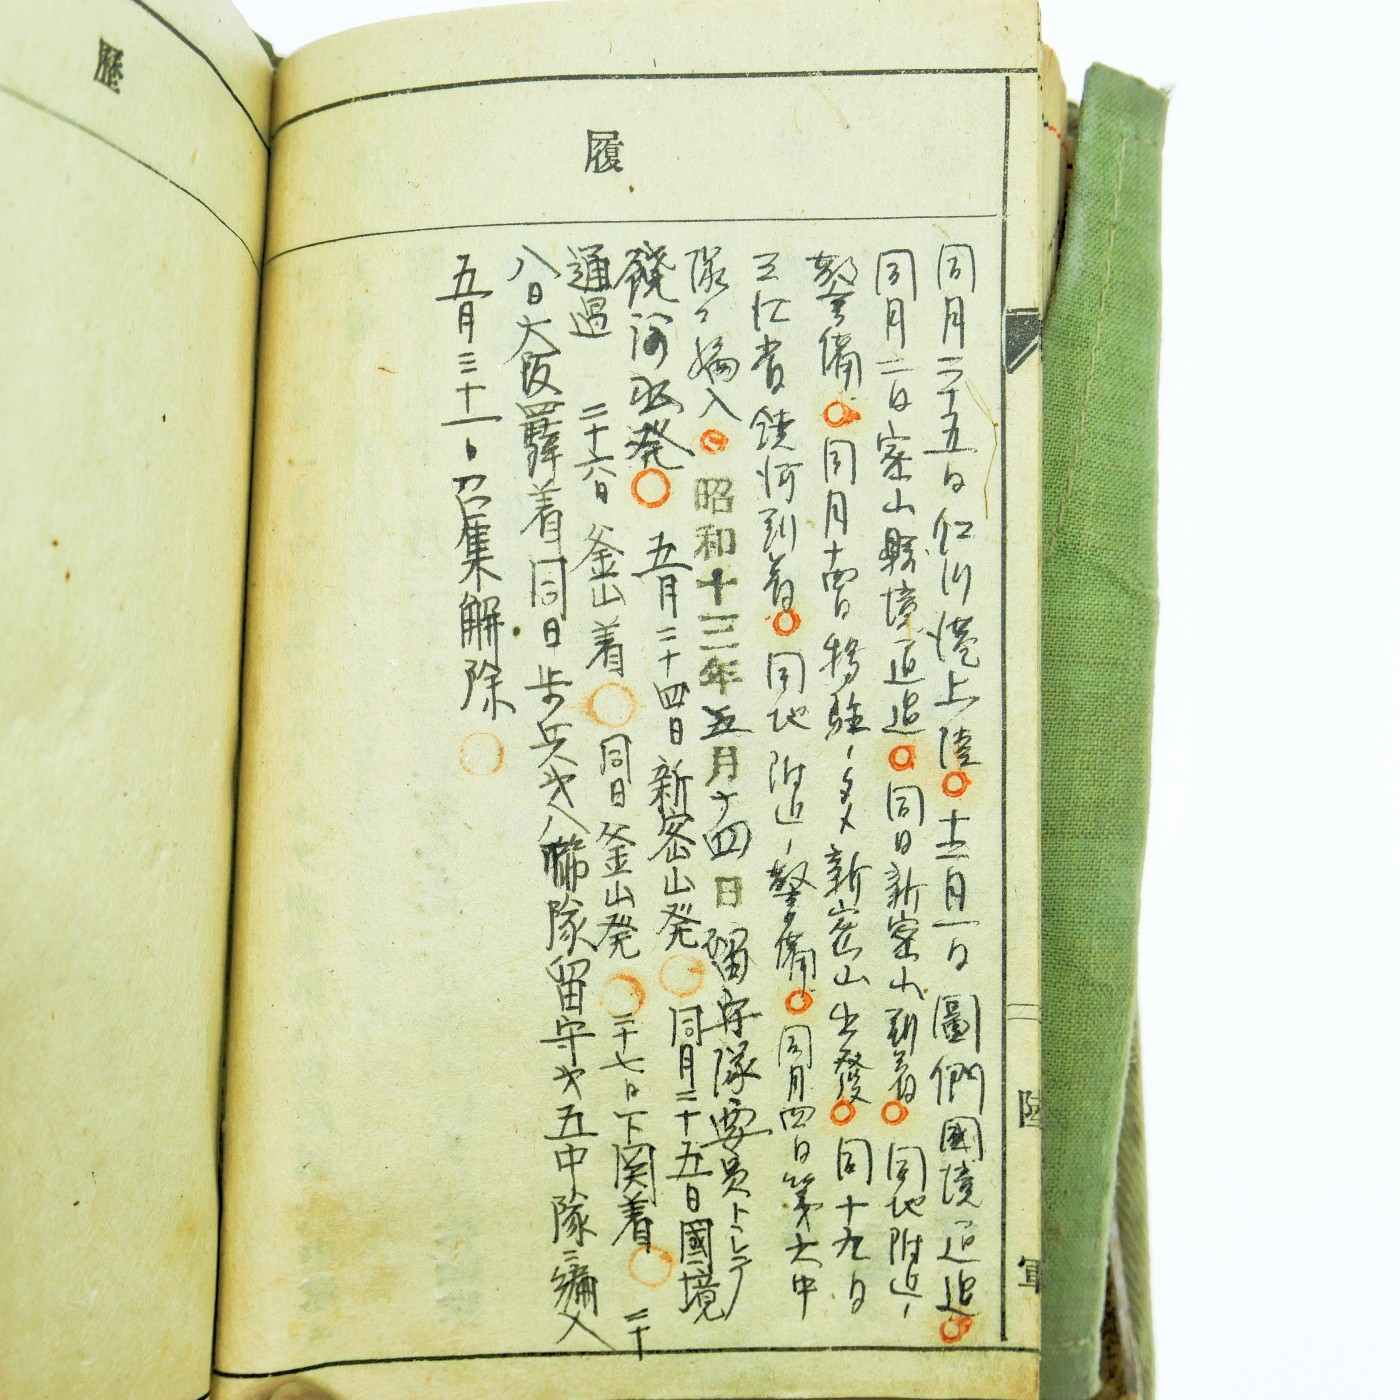 履
同月二十五日仁川港上陸○十二月一日圖們國境通過○
同月二日密山縣境通過○同日新密山到着○同地附近ノ
警備○同月十四日移駐ノタメ新密山出發○同十九日
三江省饒河到着○同地附近ノ警備○同月四日第六中
隊ニ編入○昭和十三年五月十四日留守隊要員トシテ
饒河出発○五月二十四日新密山発○同月二十五日國境
通過 二十六日釜山着○同日釜山発○二十七日下関着○二十
八日大阪驛着同日歩兵才八聯隊留守才五中隊ニ編入
五月三十一日召集解除○
歷
陸
軍